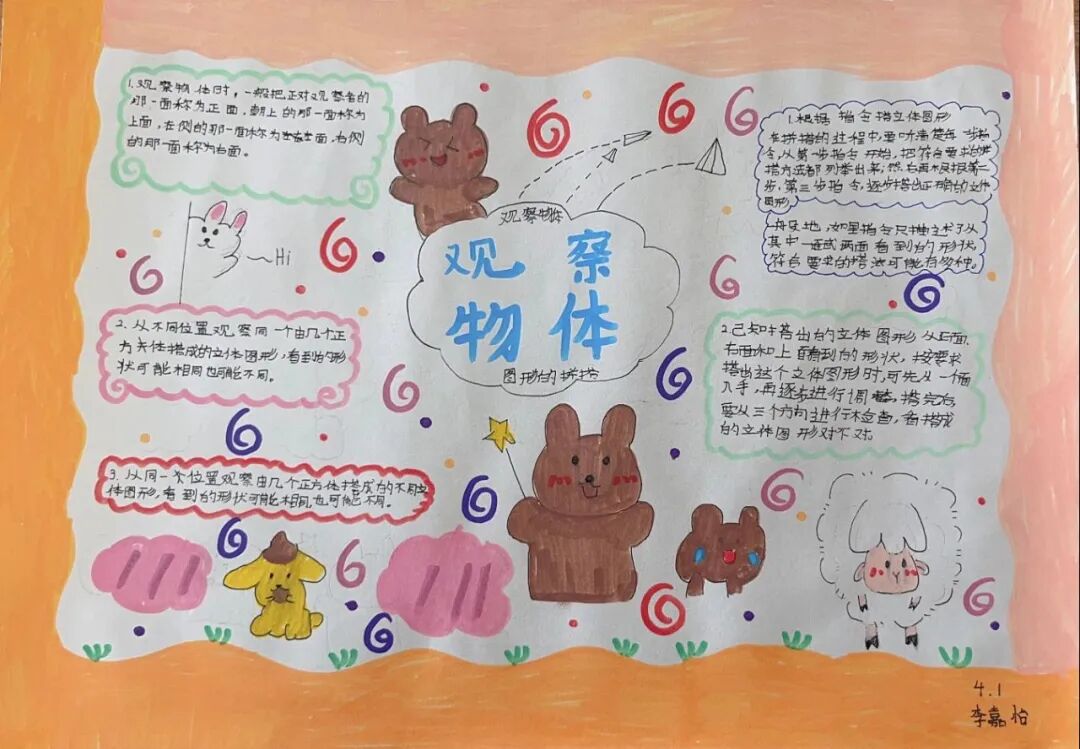 1.观察物体时，一般把正对观察者的
那一面称为正面，朝上的那一面称为
上面，在侧的那一面称为左面，右侧
的那一面称为右面。
Hi
2. 从不同位置观察同一个由几个正
方关体搭成的立体图形，看到的形
状可能相同也可能不同。
3. 从同一个位置观察由几个正方体搭成的不同立
体图形，看到的形状可能相同也可能不同。
观察物体
观察
物体
图形的拼搭
1.根据指令搭立体图形
在拼搭的过程中，要听清楚每一步指
令，从第一步指令开始，把符合要求的拼
搭方法都列举出来，然后再根据第二
步，第三步指令，逐步搭出正确的立体
图形
一般地，如果指令只描述了从
其中一面或两面看到的形状，
符合要求的搭法可能有多种。
2.已知搭出的立体图形从正面、
右面和上面看到的形状，按要求
搭出这个立体图形时，可先从一面
入手，再逐步进行调整，搭完后
要从三个方向进行检查，看搭成
的立体图形对不对。
4.1
李嘉怡